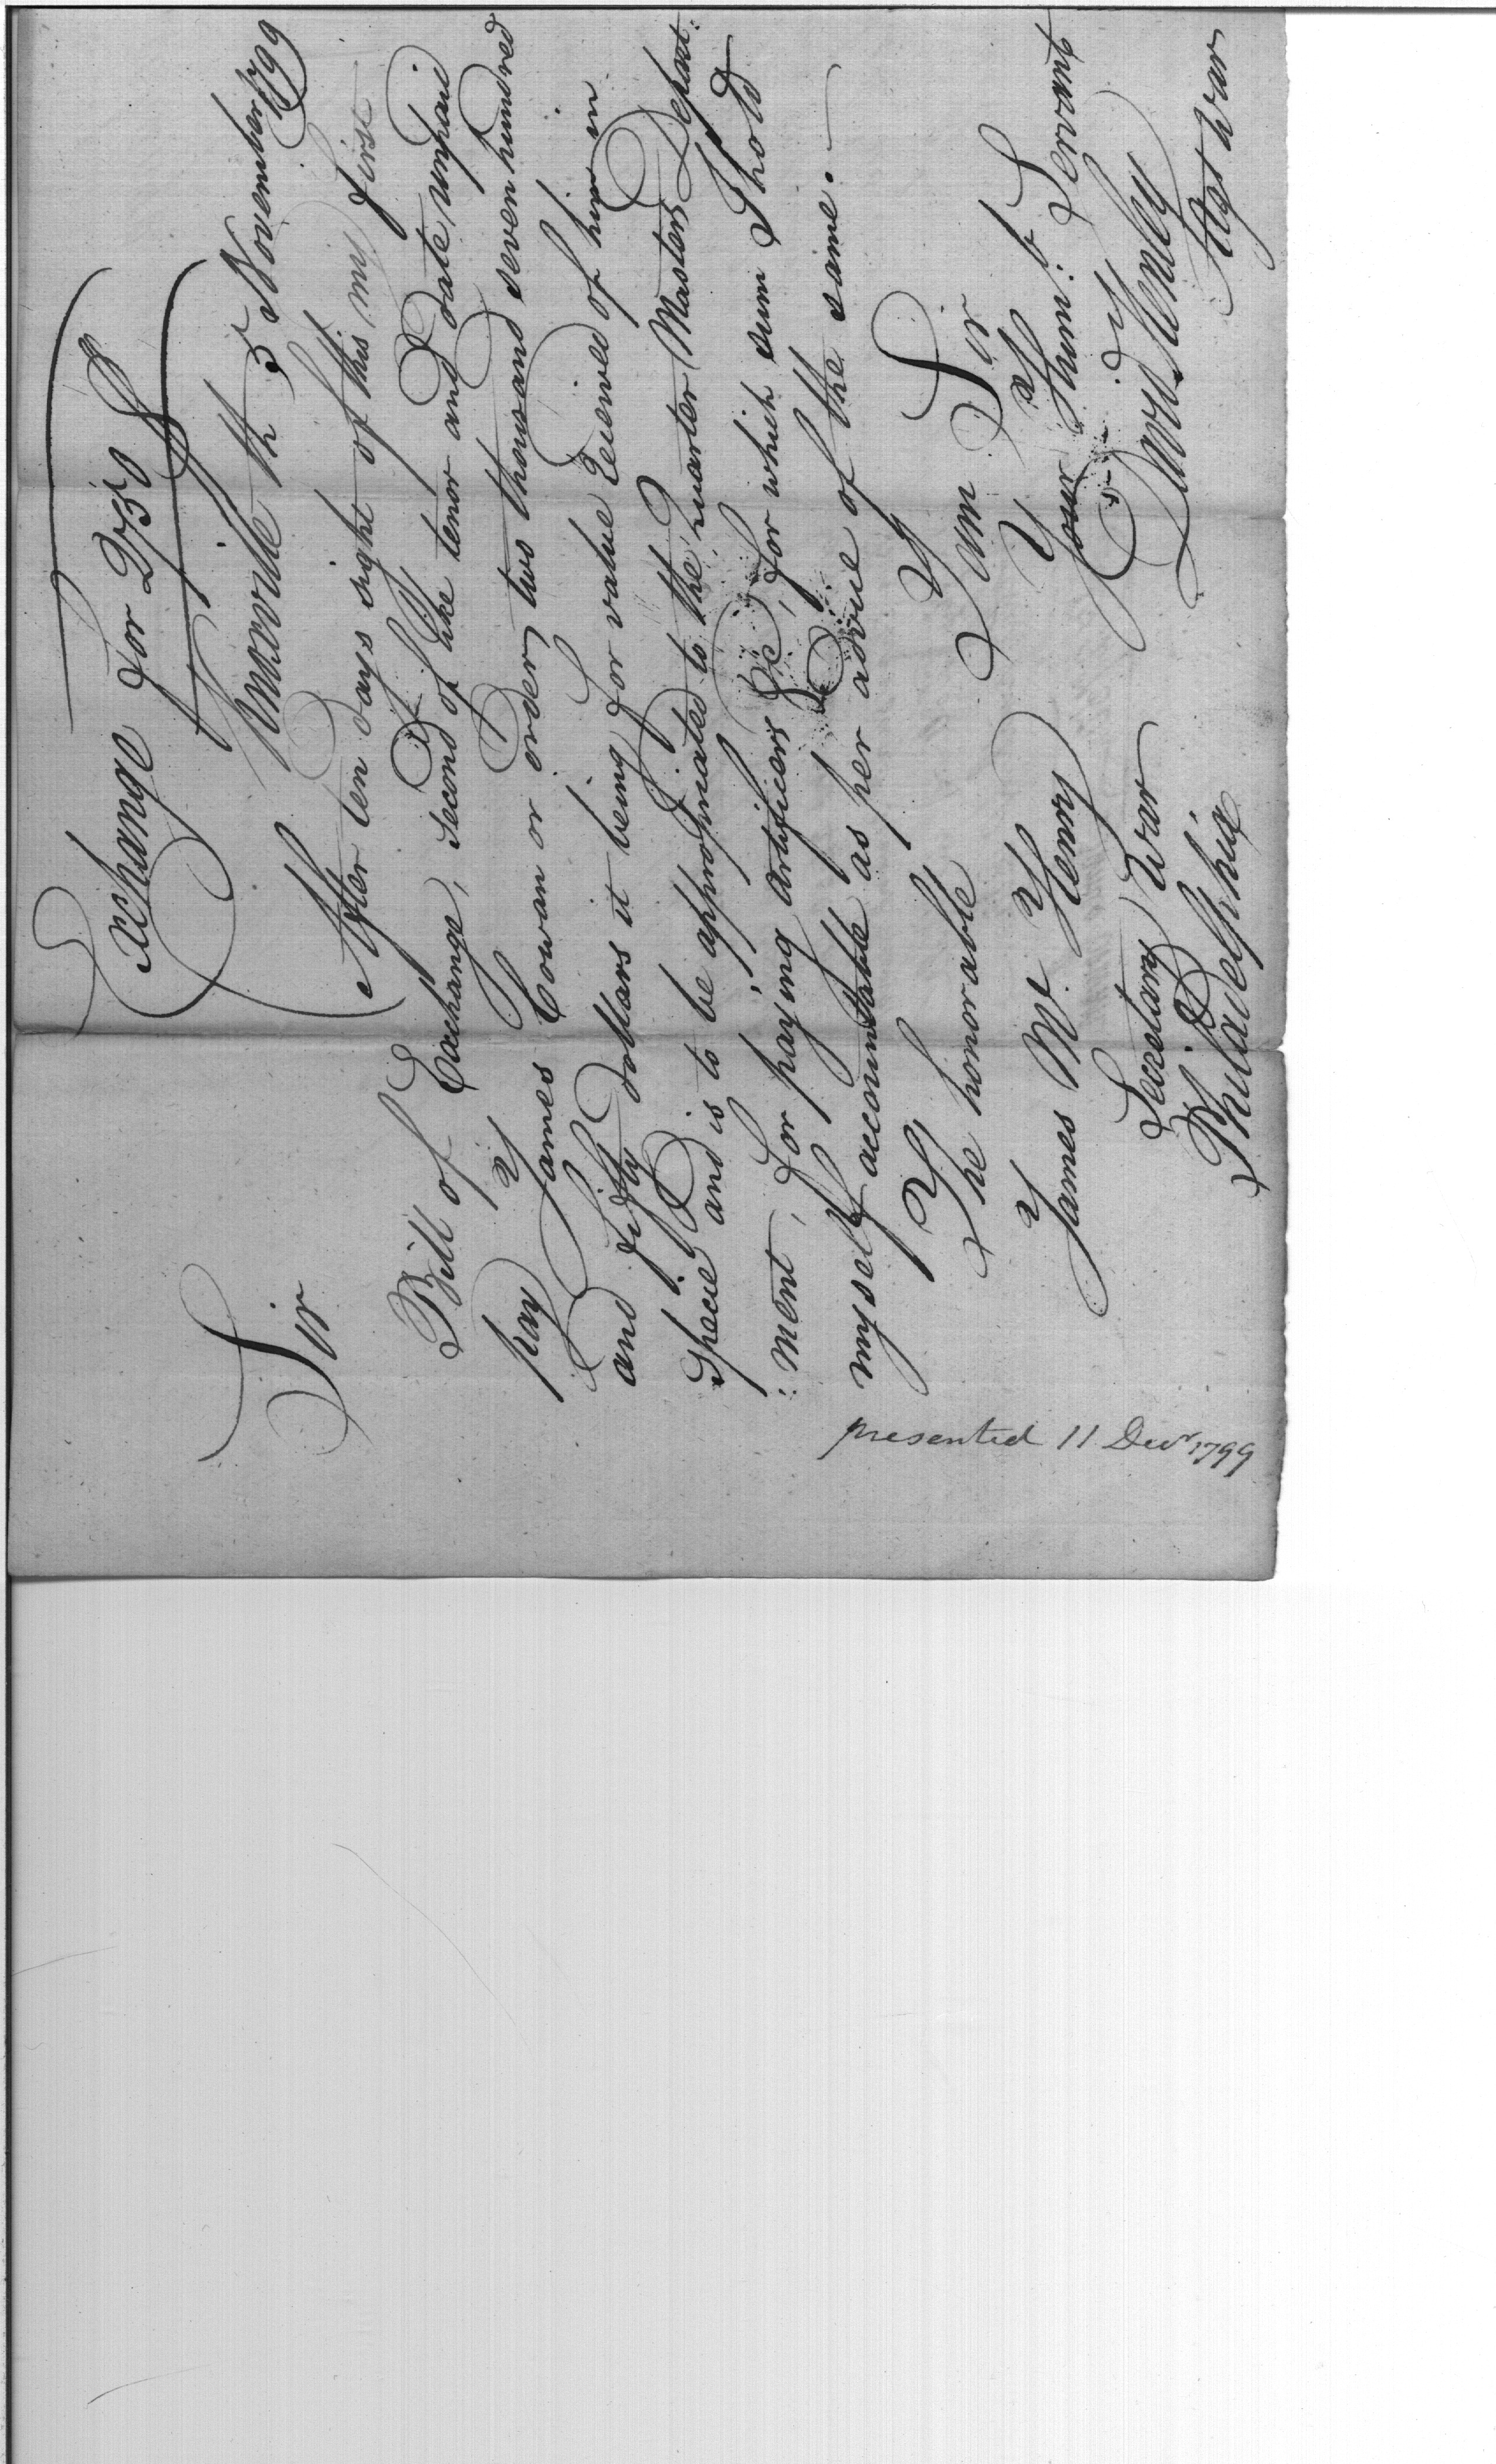 Exchange for 2750 D
Knoxville the 5 November 1799
Sir
After ten days sight of this my first
Bill of Exchange, second of like tenor and date unpaid
pay James Cowan or order two thousand seven hundred
and fifty dollars it being for value Received of him in
specie and is to be appropriated to the Quarter Masters Depart:
:ment, for paying artificers &c, for which sum I hold
myself accountable as per advice of the same.—
I am Sir
The honorable
Your Hum:e Servant
James Mc Henry
David Henley
Secretary War
Agt War
Philadelphia
presented 11 Decr 1799